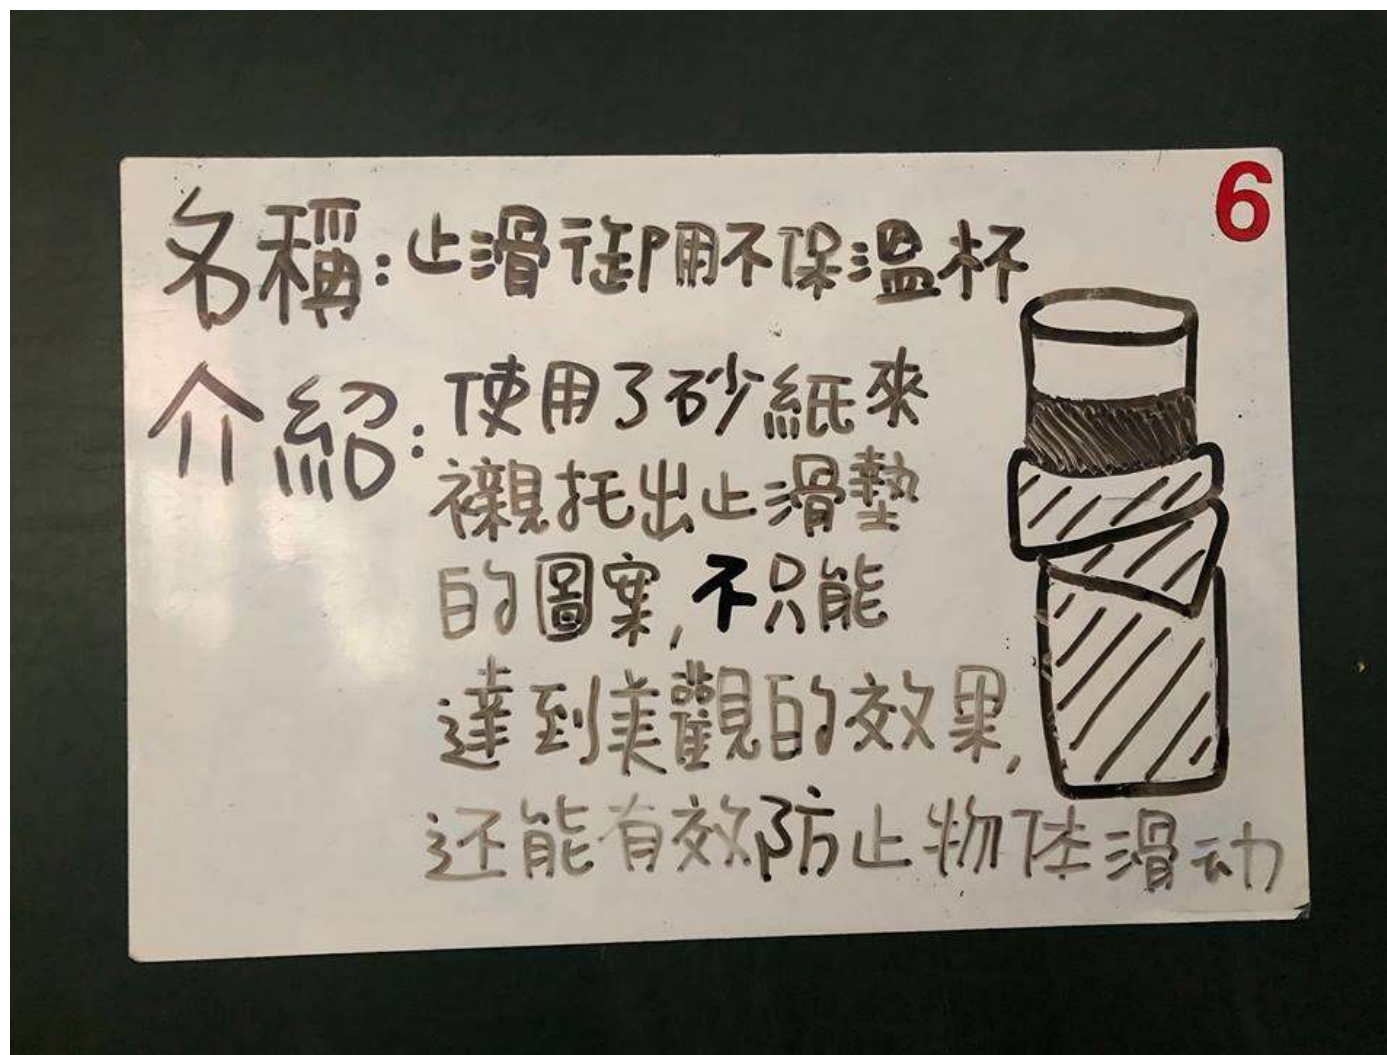 6
名稱:止滑御用不保溫杯
介紹:使用了砂紙來
襯托出止滑墊
的圖案,不只能
達到美觀的效果,
还能有效防止物体滑动